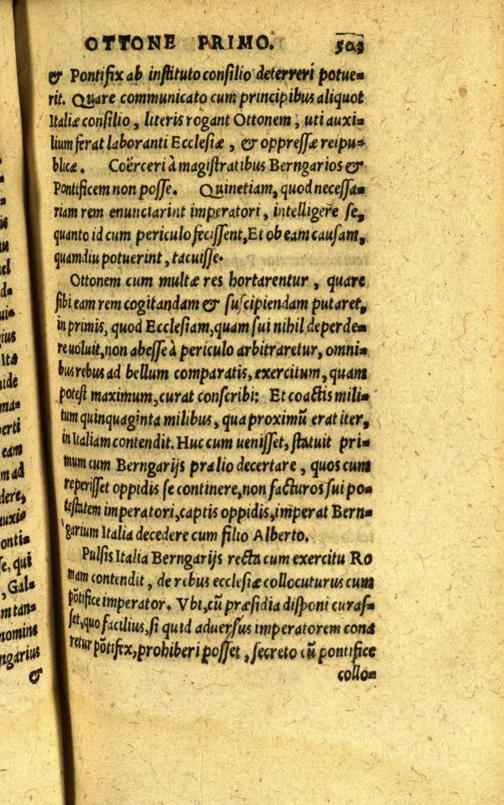 OTTONE PRIMO. 503
& Pontifix ab instituto consilio deterreri potue=
rit. Quare communicato cum principibus aliquot
Italiæ consilio, literis rogant Ottonem, uti auxi=
lium ferat laboranti Ecclesiæ, & oppressæ reipu=
blicæ. Coërceri à magistratibus Berngarios &
Pontificem non posse. Quinetiam, quod necessa=
riam rem enunciarint imperatori, intelligere se,
quanto id cum periculo fecissent, Et ob eam causam,
quamdiu potuerint, tacuisse.
Ottonem cum multæ res hortarentur, quare
sibi eam rem cogitandam & suscipiendam putaret,
in primis, quod Ecclesiam, quam sui nihil deperde=
re uoluit, non abesse à periculo arbitraretur, omni=
bus rebus ad bellum comparatis, exercitum, quam
potest maximum, curat conscribi: Et coactis mili=
tum quinquaginta milibus, qua proximũ erat iter,
in Italiam contendit. Huc cum uenisset, statuit pri=
mum cum Berngarijs prælio decertare, quos cum
reperisset oppidis se continere, non facturos sui po=
testatem imperatori, captis oppidis, imperat Bern=
garium Italia decedere cum filio Alberto.
Pulsis Italia Berngarijs recta cum exercitu Ro
mam contendit, de rebus ecclesiæ collocuturus cum
põtifice imperator. Vbi, cũ præsidia disponi curas=
set, quo facilius, si quid aduersus imperatorem cona
retur põtifex, prohiberi posset, secreto cũ pontifice
collo=